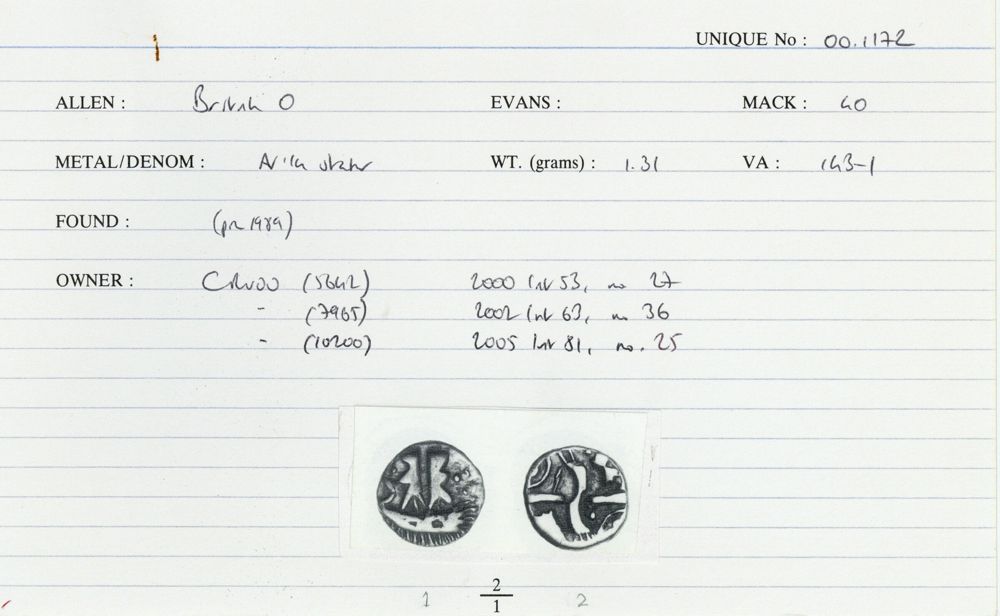 UNIQUE No : 00.1172
ALLEN : British O EVANS : MACK : 40
METAL/DENOM : AV 1/4 stater WT. (grams) : 1.31 VA : 143-1
FOUND : (pre 1989)
OWNER : (5642) 2000 53, no 27
- (7965) 2002 63, no 36
- (10200) 2005 81, no. 25
1 2 2
1